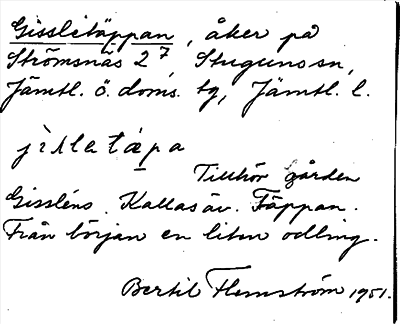 Gisslétäppan, åker på
Strömsnäs 2⁷, Stuguns sn,
Jämtl. ö. doms. tg, Jämtl. l.
Tillhör gården
Gissléns. Kallas äv. Täppan.
Från början en liten odling.
Bertil Flemström 1951.